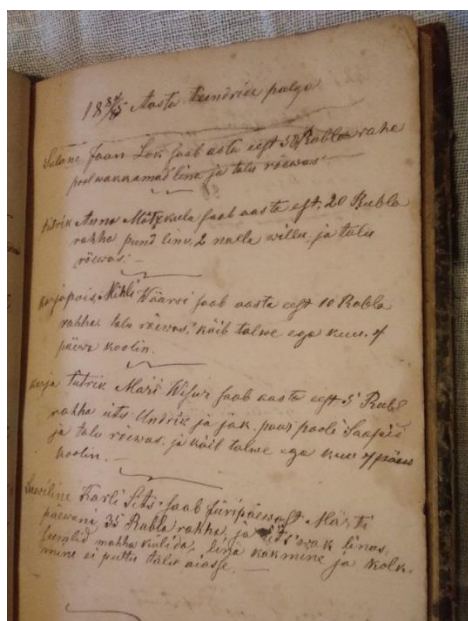 18 84/85 Aasta teendride palga
Sulane Jaan saab aasta eest 50 Rubla raha
pool wakkamad lina ja talu rõiwas.
tütrik Anna Mätzkula saab aasta est. 20 Rubla
rahha pund linu, 2 nalla willu, ja talu
rõiwas. —
karjapois Mihli saab aasta eest 10 Rubla
rahha talu rõiwas, käib talwe ega kuu 4
päiwa koolin.
karja tüdrik Mari saab aasta eest 5 Rubl
rahha üts Undrik ja jak, paar pooli Saapid
ja talu rõiwas ja käib talwe ega kuu 4 päiw
koolin. —
Suweline Karli Sits saab Jüripäewast Märti
päewani 35 Rubla rahha, ja üts wak linas
mahha külida, lina kakmine ja kolk-
mine ei puttu talu aiasse. —